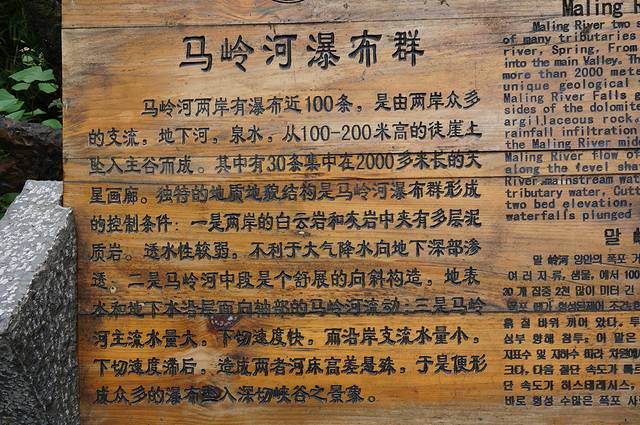 马岭河瀑布群
马岭河两岸有瀑布近100条，是由两岸众多
的支流，地下河，泉水，从100-200米高的徒崖上
坠入主谷而成。其中有30条集中在2000多米长的天
星画廊。独特的地质地貌结构是马岭河瀑布群形成
的控制条件：一是两岸的白云岩和灰岩中夹有多层泥
质岩。透水性较弱，不利于大气降水向地下深部渗
透，二是马岭河中段是个舒展的向斜构造，地表
水和地下水沿层面向轴部的马岭河流动；三是马岭
河主流水量大，下切速度快，而沿岸支流水量小，
下切速度滞后，造成两者河床高差悬殊，于是便形
成众多的瀑布坠入深切峡谷之景象。
Maling
Maling River two
of many tributaries
river, Spring, From
into the main Valley. Th
more than 2000 mete
unique geological
Maling River Falls
sides of the dolomite
argillaceous rock.
rainfall infiltration
the Maling River mid
Maling River flow of
along the level shaft
River mainstream wat
tributary water, Cut
two bed elevation,
waterfalls plunged
말
말 岭河 양안의 폭포 거
여러 지류, 샘물, 에서 100
30 개 집중 2천 많이 미터 긴